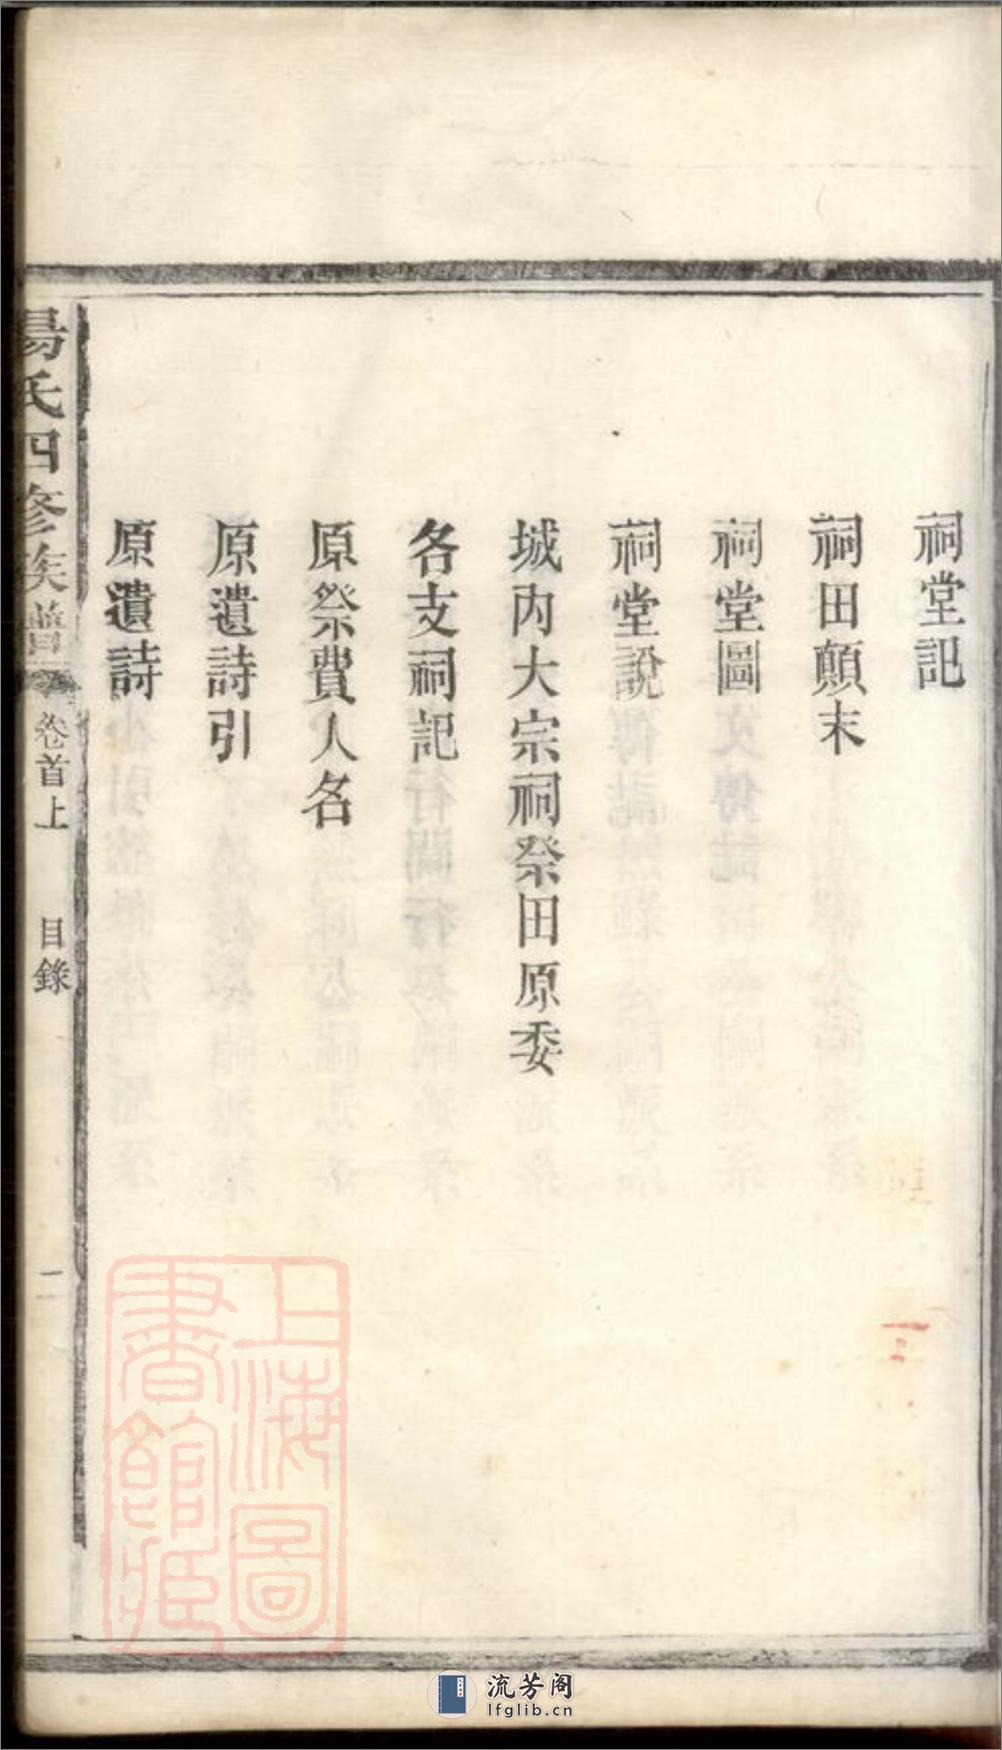 祠堂記
祠田顛末
祠堂圖
祠堂說
城內大宗祠祭田原委
各支祠記
原祭費人名
原遺詩引
原遺詩
易氏四修族譜
卷首上
目錄
二
上海圖
書館藏
流芳阁
lfglib.cn